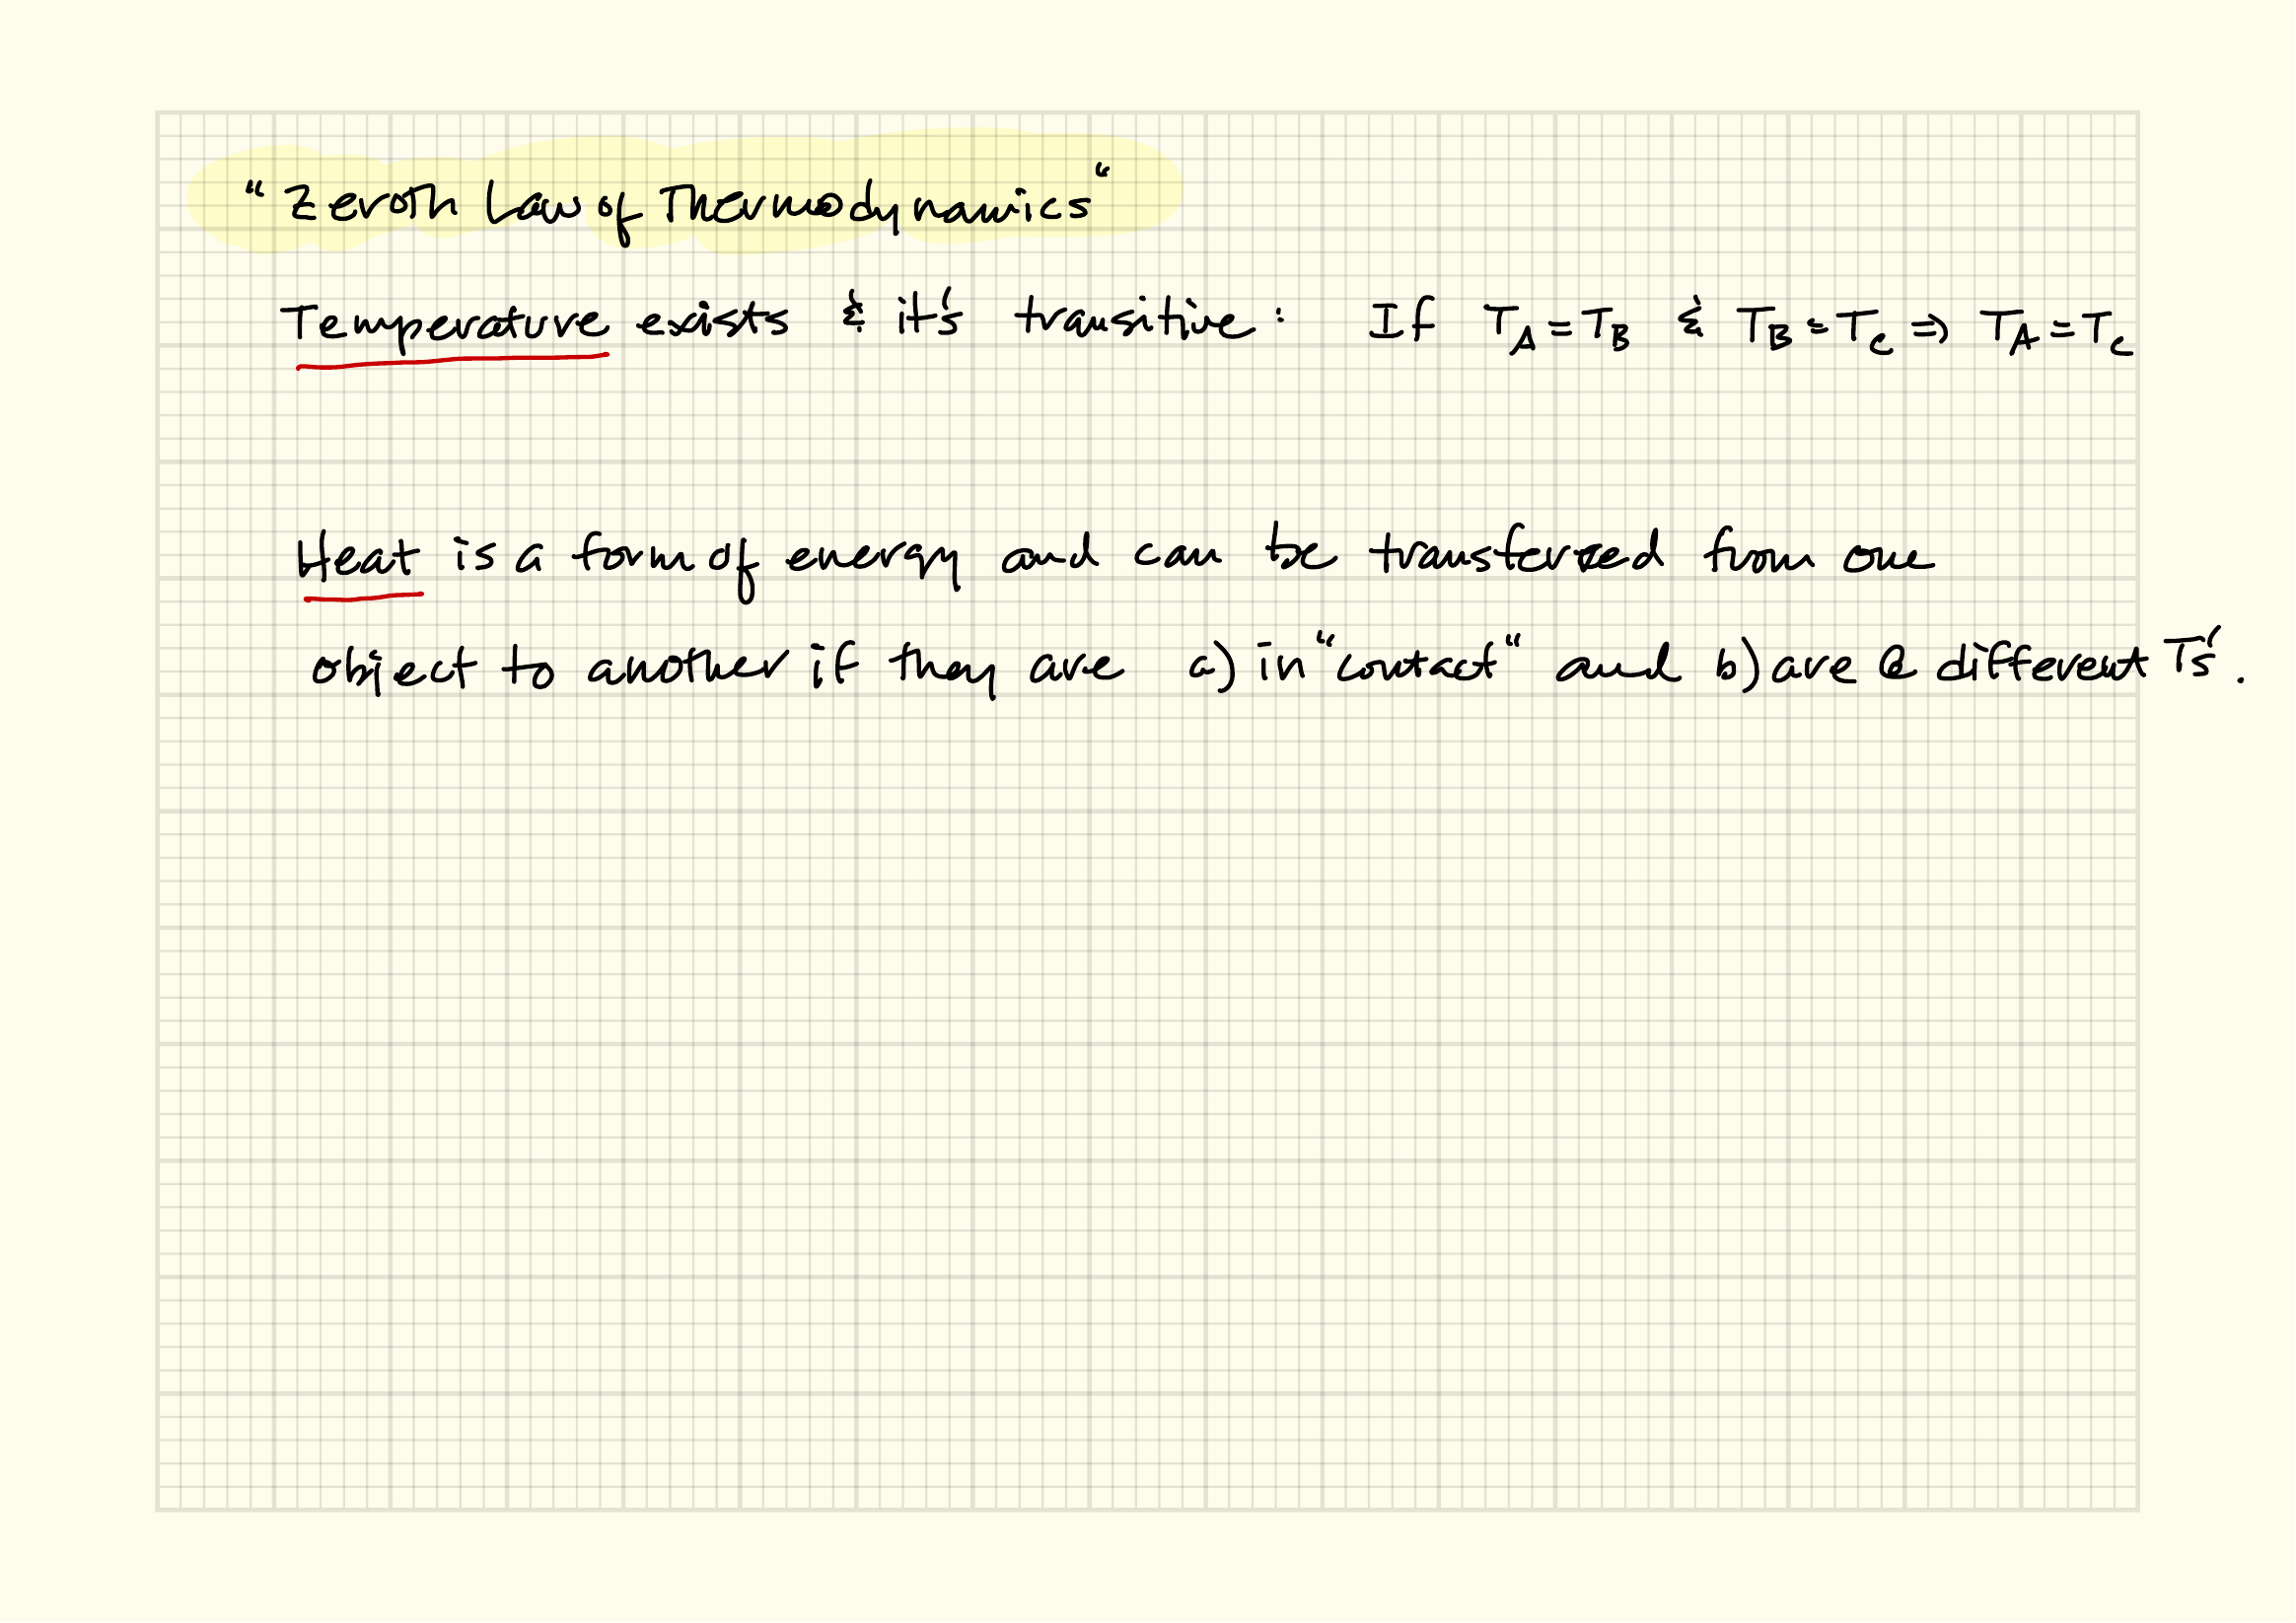 "Zeroth Law of Thermodynamics"
Temperature exists & it's transitive: If T_A = T_B & T_B = T_C ⇒ T_A = T_C
Heat is a form of energy and can be transferred from one
object to another if they are a) in "contact" and b) are @ different T's.